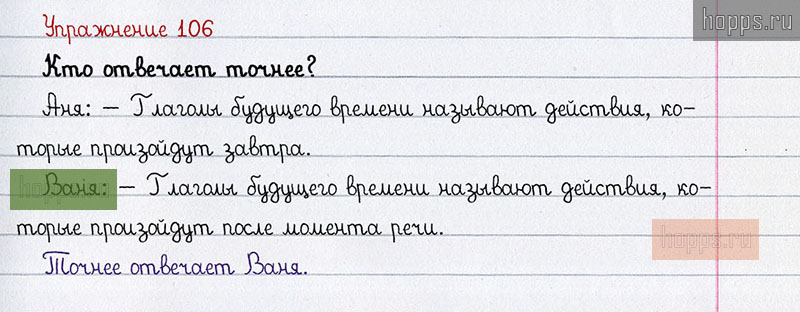 hopps.ru
Упражнение 106
Кто отвечает точнее?
Аня: – Глаголы будущего времени называют действия, ко-
торые произойдут завтра.
Ваня: – Глаголы будущего времени называют действия, ко-
торые произойдут после момента речи.
hopps.ru
Точнее отвечает Ваня.